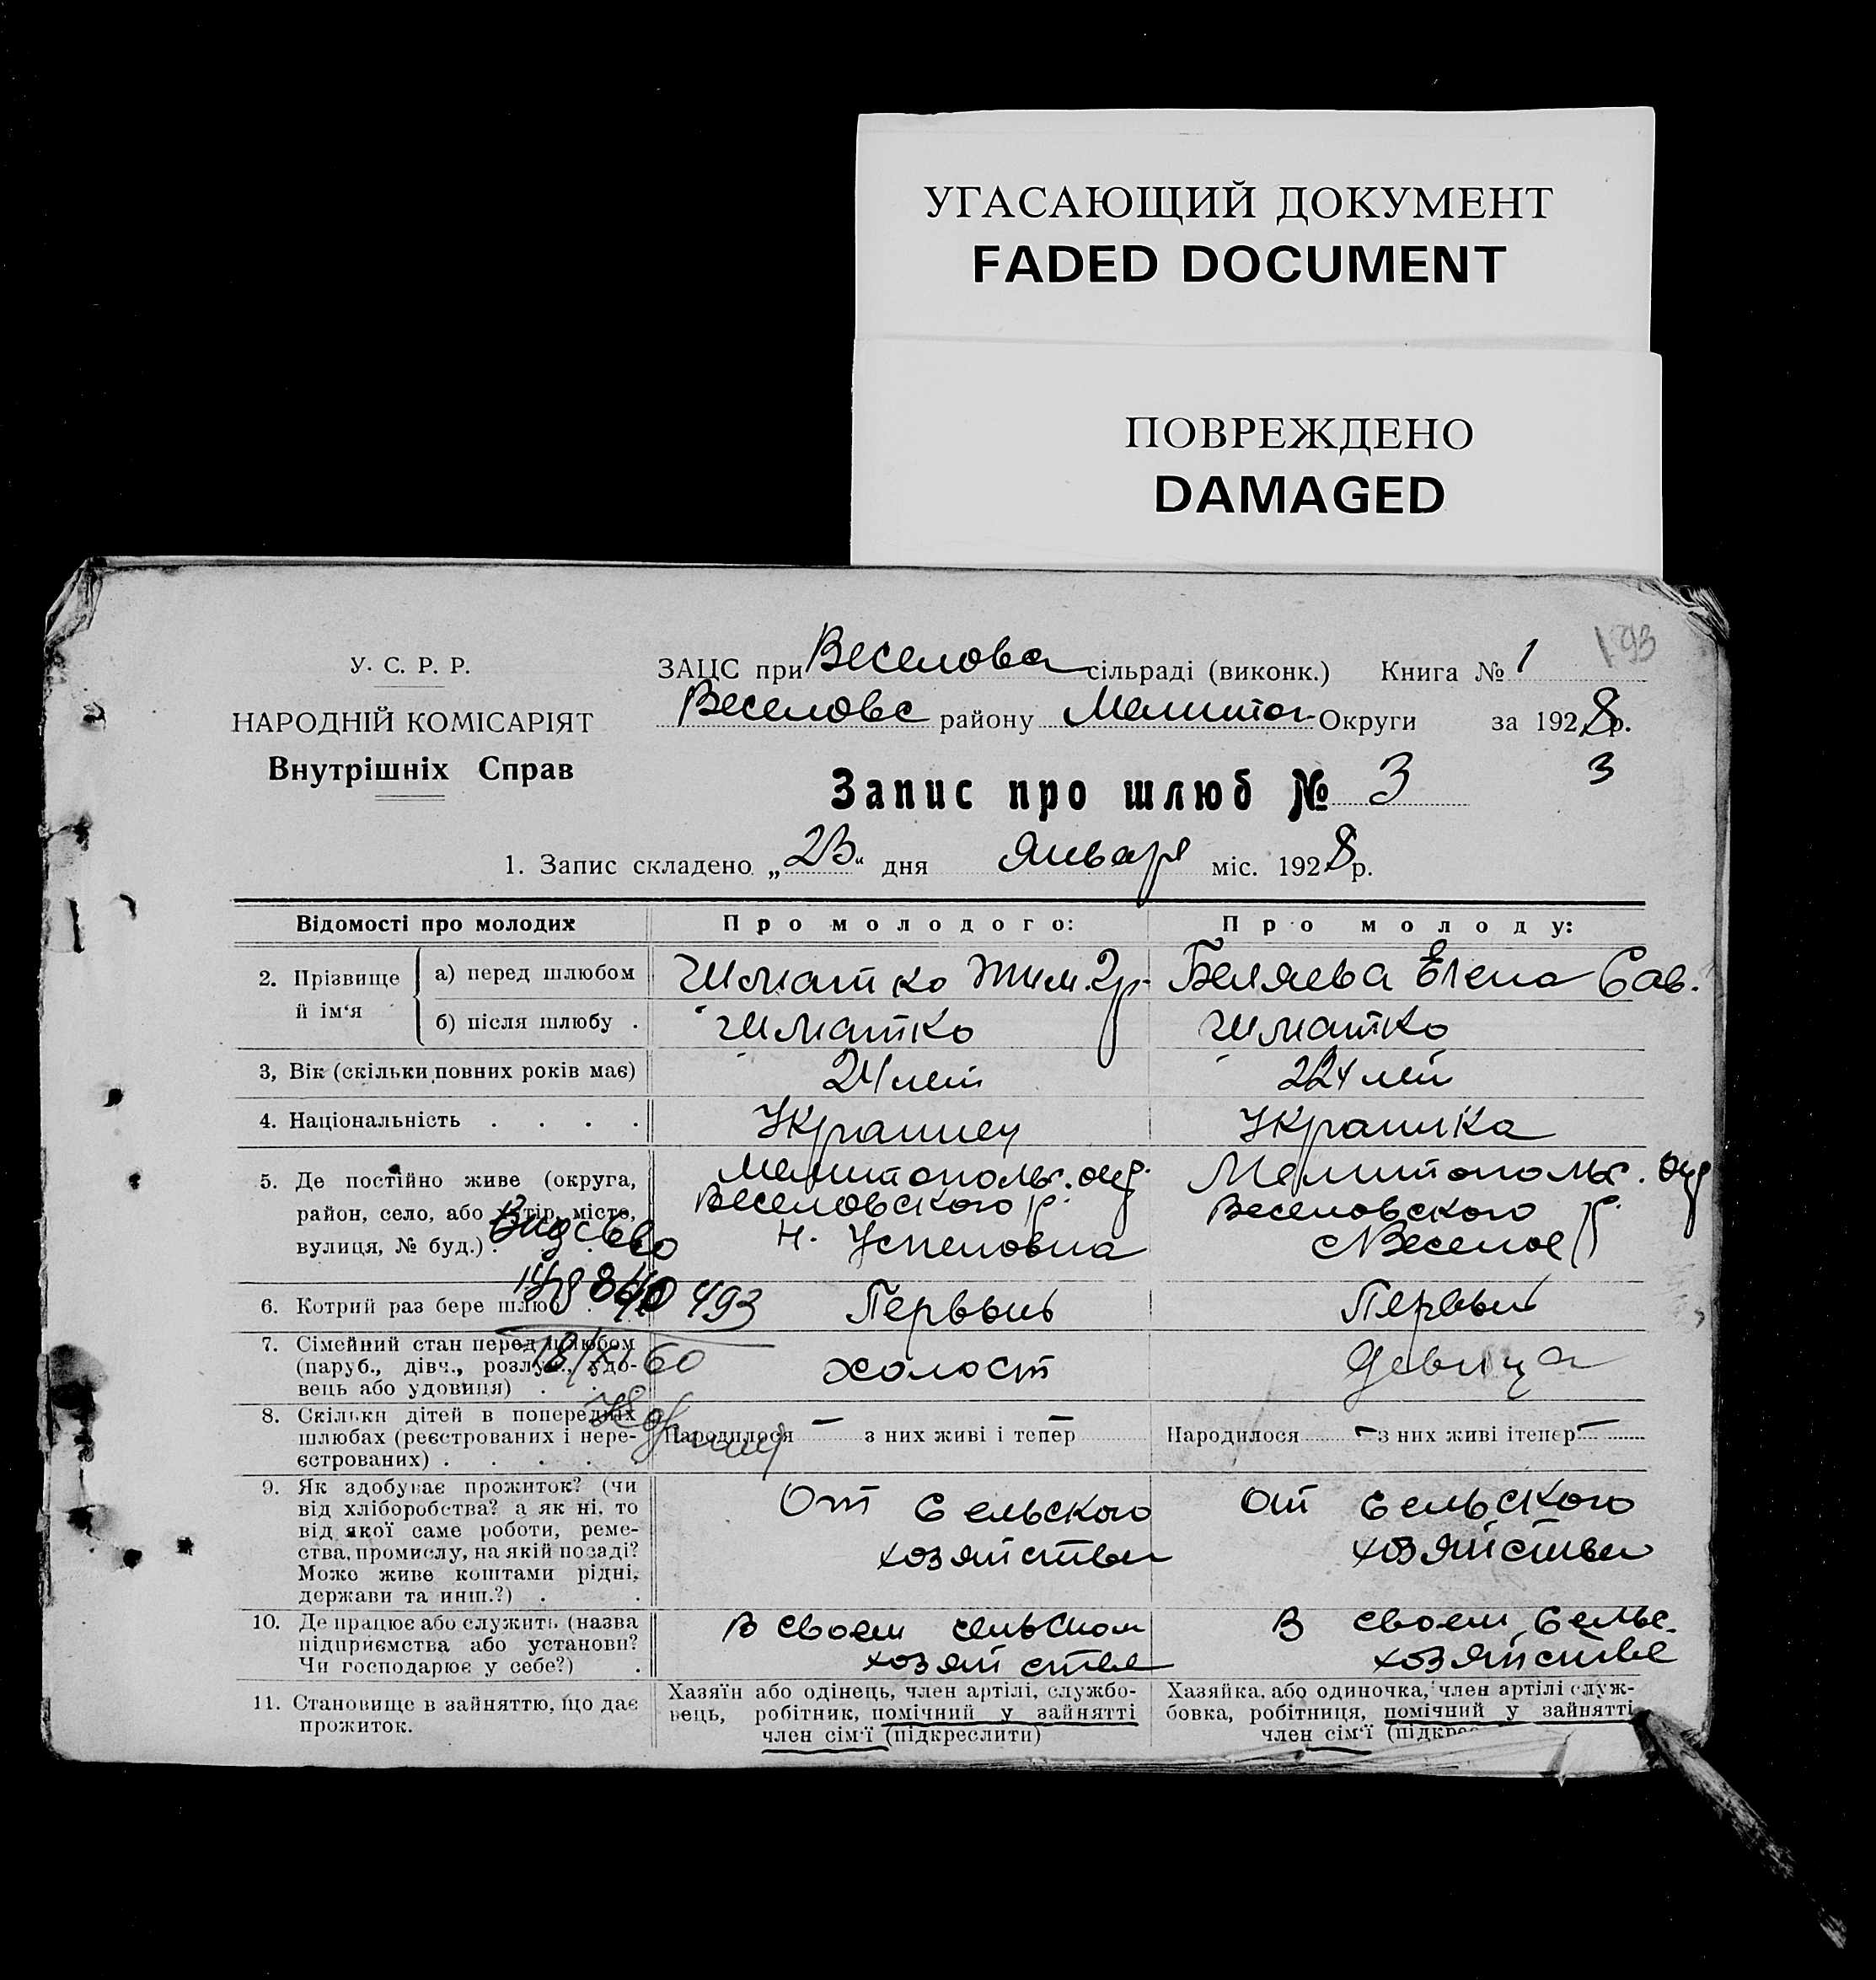 УГАСАЮЩИЙ ДОКУМЕНТ
FADED DOCUMENT
ПОВРЕЖДЕНО
DAMAGED
193
У. С. Р. Р.
НАРОДНІЙ КОМІСАРІЯТ
Внутрішніх Справ
ЗАЦС при Веселова сільраді (виконк.) Книга № 1
Веселовс району Мелитоп. Округи за 1928 р.
3
Запис про шлюб № 3
1. Запис складено „23“ дня Января міс. 1928 р.
Відомості про молодих
Про молодого:
Про молоду:
2. Прізвище й ім‘я
а) перед шлюбом
Шматко Тим. Гр.
Беляева Елена Сав.
б) після шлюбу .
Шматко
Шматко
3, Вік (скільки повних років має)
24 лет
лет
4. Національність . . . .
Украинец
Украинка
5. Де постійно живе (округа,
район, село, або хутір, місто,
вулиця, № буд.) .
Мелитопольс. окр.
Веселовского р.
Н. Успеновка
Мелитопольс. окр
Веселовского р.
с Веселое
6. Котрий раз бере шлюб .
493
Первый
Первый
7. Сімейний стан перед шлюбом
(паруб., дівч., розлуч., удо-
вець або удовиця) . .
18/XI 60
холост
девица
8. Скільки дітей в попередніх
шлюбах (реєстрованих і нере-
єстрованих) . . . . .
Народилося – з них живі і тепер –
Народилося – з них живі і тепер –
9. Як здобуває прожиток? (чи
від хліборобства? а як ні, то
від якої саме роботи, реме-
ства, промислу, на якій посаді?
Може живе коштами рідні,
держави та инш.?) . .
От сельского
хозяйства
От сельского
хозяйства
10. Де працює або служить (назва
підприємства або установи?
Чи господарює у себе?) .
В своем сельском
хозяйстве
В своем сельс.
хозяйстве
11. Становище в зайняттю, що дає
прожиток.
Хазяїн або одінець, член артілі, службо-
вець, робітник, помічний у зайнятті
член сім‘ї (підкреслити)
Хазяйка, або одиночка, член артілі служ-
бовка, робітниця, помічний у зайнятті
член сім‘ї